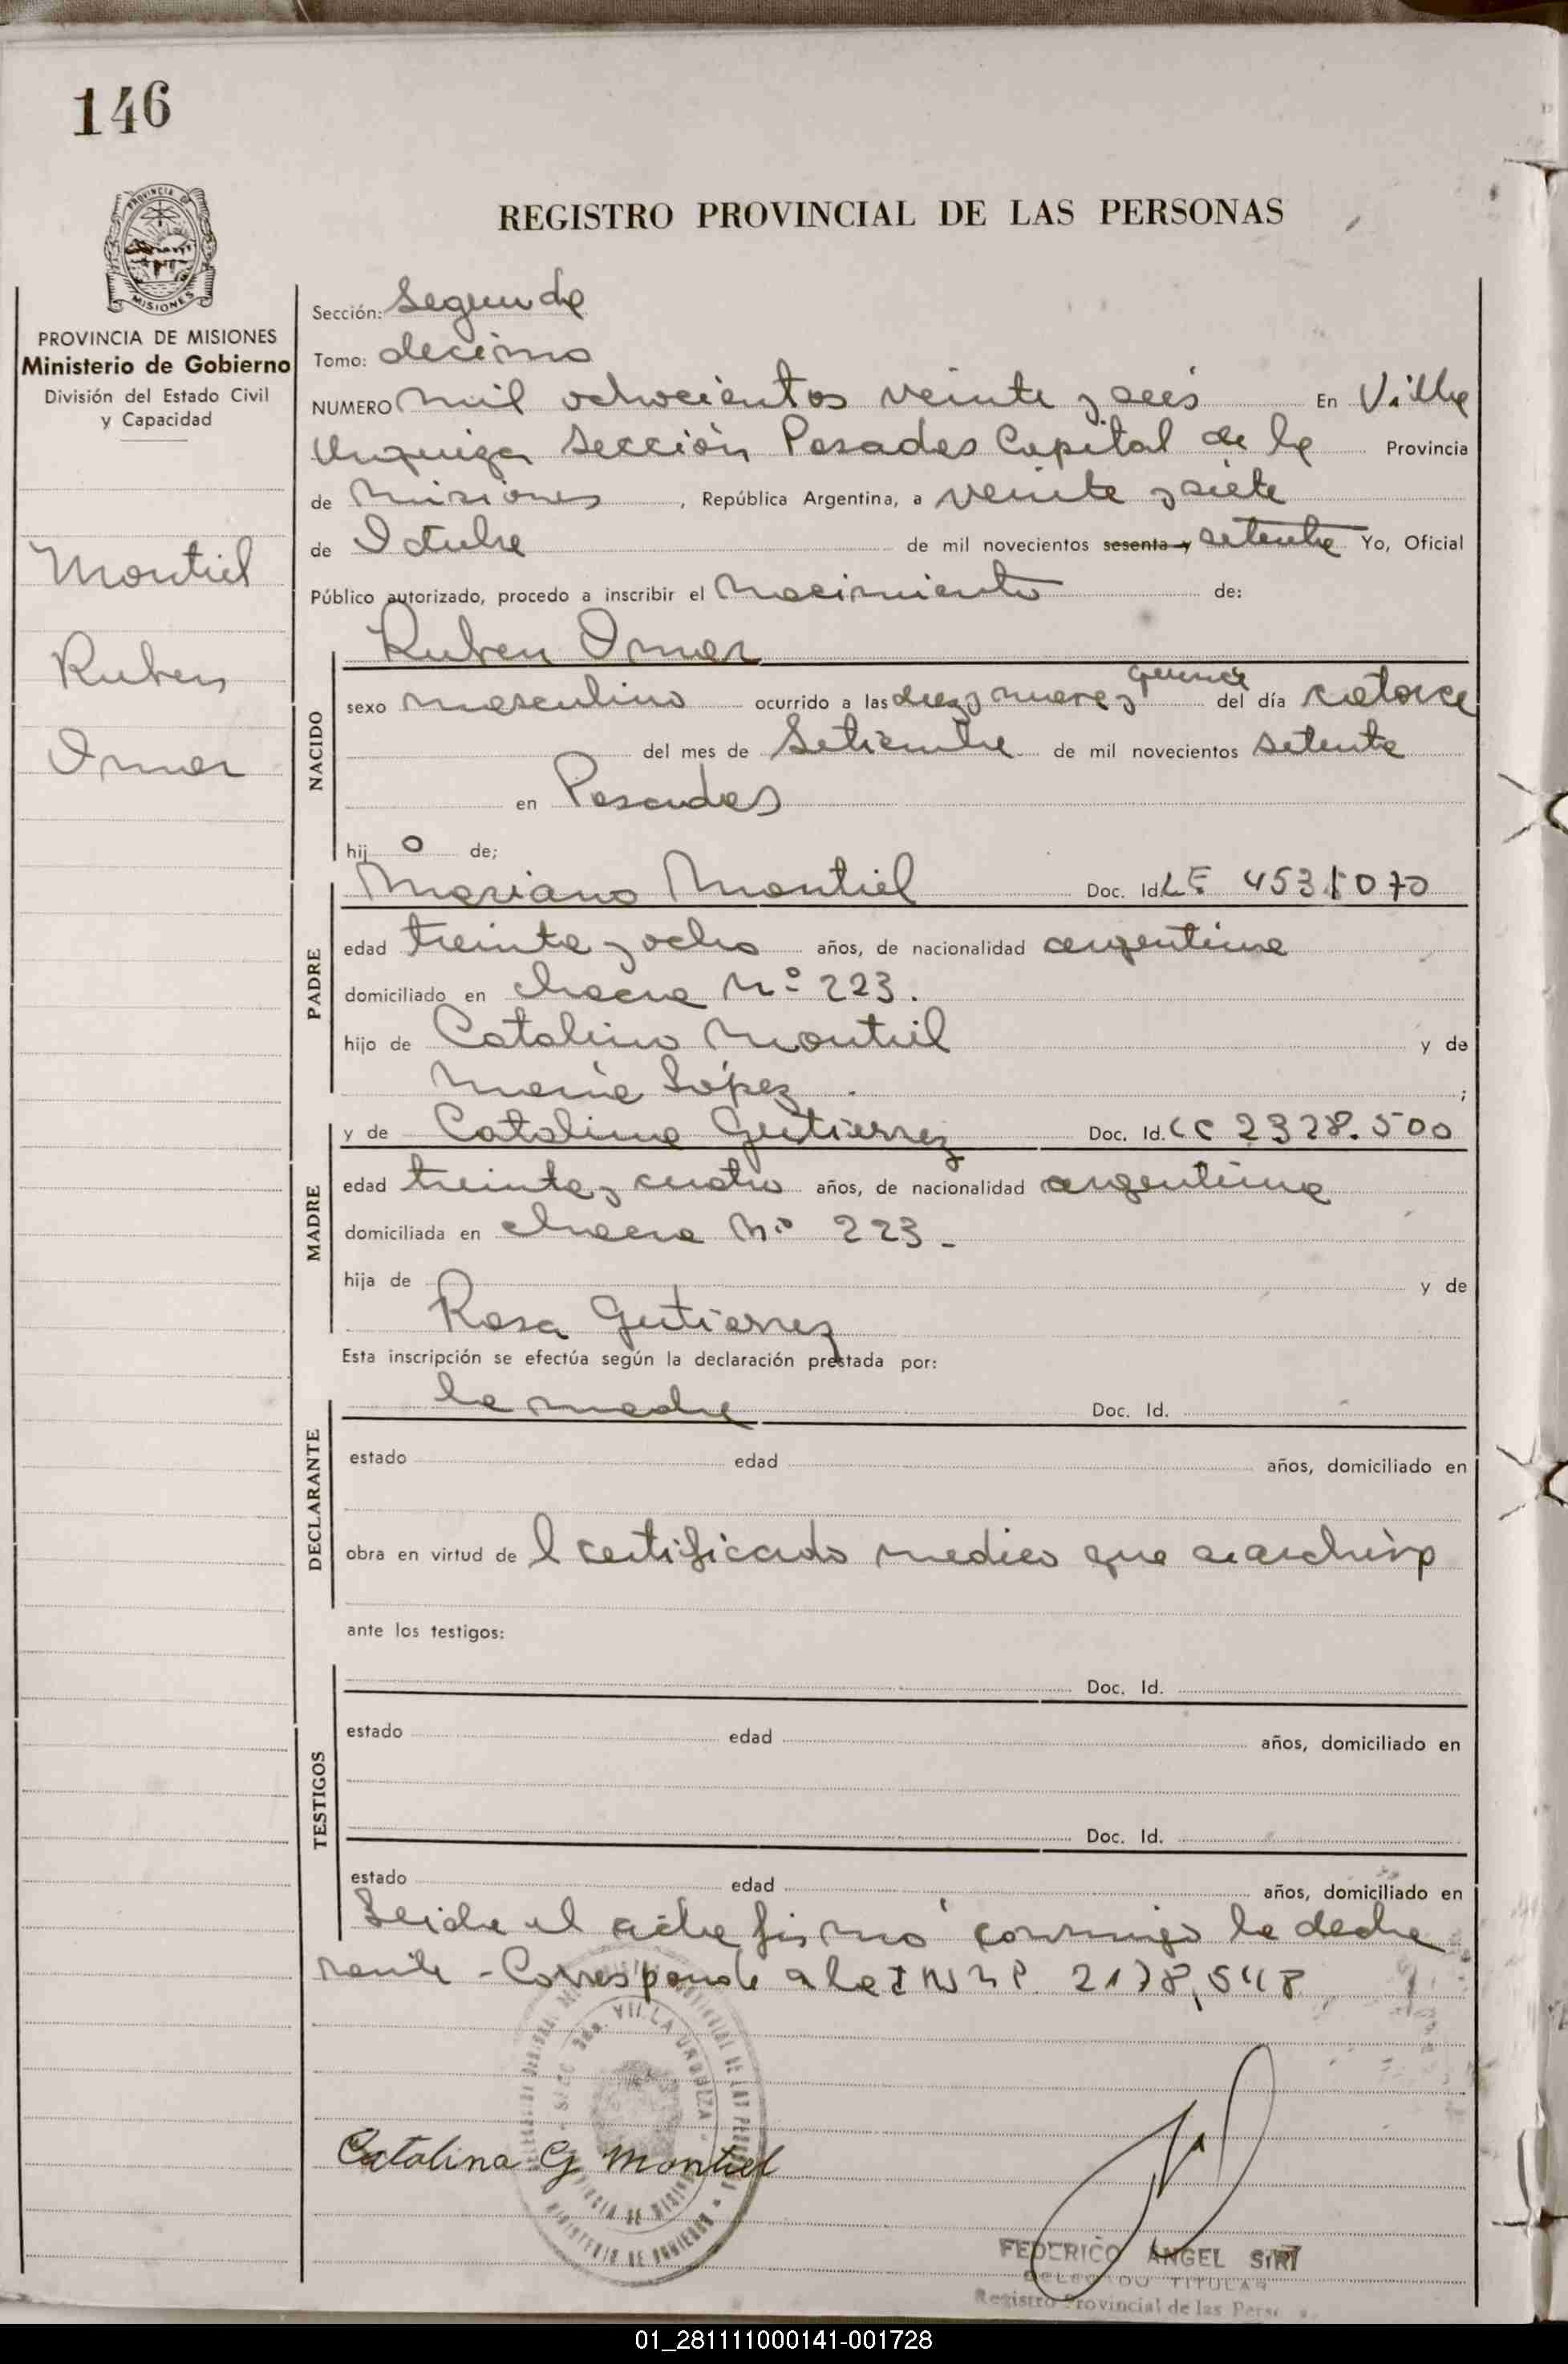 146
PROVINCIA DE
MISIONES
PROVINCIA DE MISIONES
Ministerio de Gobierno
División del Estado Civil
y Capacidad
Montiel
Ruben
Omar
REGISTRO PROVINCIAL DE LAS PERSONAS
Sección: Segunda
Tomo: decimo
NUMERO mil ochocientos veinte y seis En Villa
Urquiza Sección Posadas Capital de la Provincia
de Misiones, República Argentina, a veinte y siete
de Octubre de mil novecientos sesenta y setenta Yo, Oficial
Público autorizado, procedo a inscribir el nacimiento de:
Ruben Omar
NACIDO
sexo masculino ocurrido a las diez y nueve y quince del día catorce
del mes de Setiembre de mil novecientos setenta
en Posadas
hijo de;
PADRE
Mariano Montiel Doc. Id. LE
edad treinta y ocho años, de nacionalidad argentina
domiciliado en chacra Nº 223.
hijo de Catalino Montiel y de
Maria López ;
MADRE
y de Catalina Gutierrez Doc. Id. LC 2328.500
edad treinta y cuatro años, de nacionalidad argentina
domiciliada en chacra Nº 223-
hija de y de
Rosa Gutierrez
Esta inscripción se efectúa según la declaración prestada por:
DECLARANTE
la madre Doc. Id.
estado edad años, domiciliado en
obra en virtud del certificado medico que se archiva
ante los testigos:
TESTIGOS
Doc. Id.
estado edad años, domiciliado en
Doc. Id.
estado edad años, domiciliado en
Leida el acta firmó conmigo la decla
rante - Corresponde a la 2178,548
VILLA URQUIZA
MINISTERIO DE GOBIERNO
Catalina G Montiel
FEDERICO ANGEL SIRI
DELEGADO TITULAR
Registro Provincial de las Perso
01_281111000141-001728